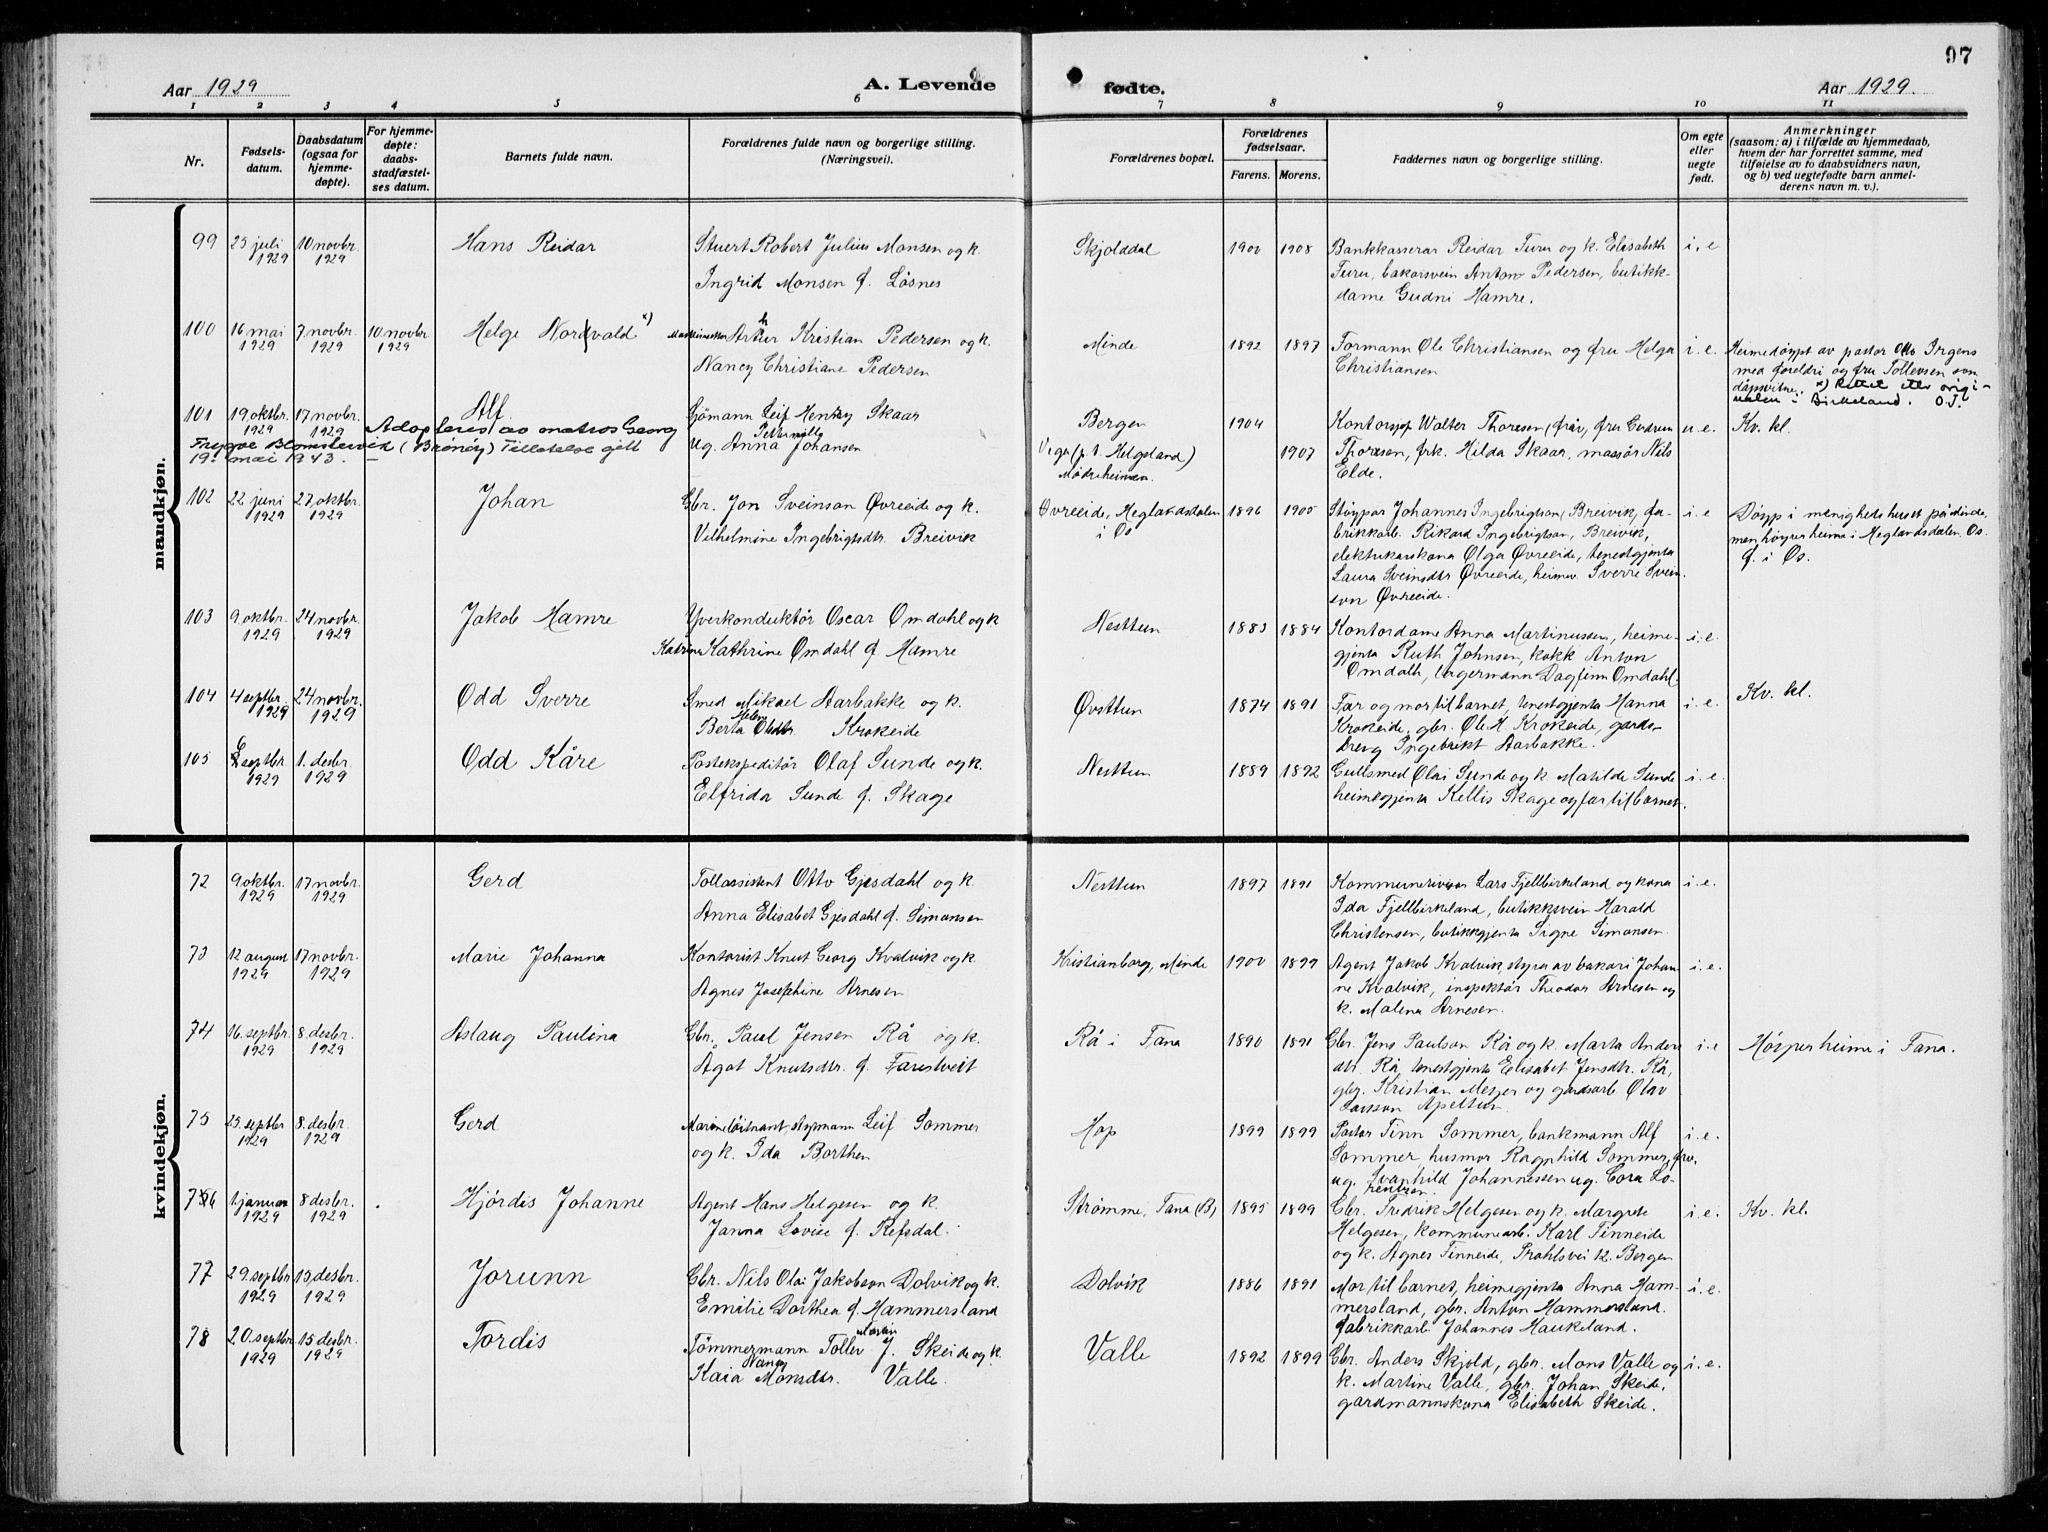 97
Aar 1929
A. Levende
fødte.
Aar 1929.
1 2 3 4 5 6 7 8 9 10 11
Nr.
Fødsels-
datum.
Daabsdatum
(ogsaa for
hjemme-
døpte).
For hjemme-
døpte:
daabs-
stadfæstel-
ses datum.
Barnets fulde navn.
Forældrenes fulde navn og borgerlige stilling.
(Næringsvei).
Forældrenes bopæl.
Forældrenes
fødselsaar.
Farens. Morens.
Faddernes navn og borgerlige stilling.
Om egte
eller
uegte
født.
Anmerkninger
(saasom: a) i tilfælde av hjemmedaab,
hvem der har forrettet samme, med
tilføielse av to daabsvidners navn,
og b) ved uegtefødte barn anmel-
derens navn m. v.).
mandkjøn.
99
25 juli
1929
10 novbr.
1929
Hans Reidar
Stuert Robert Julius Monsen og k.
Ingrid Monsen f. Løsnes
Skjolddal
1900
1908
Bankkasserar Reidar Turu og k. Elisabeth
Turu, bakarsvein Anton Pedersen, butikk-
dame Gudni Hamre.
i. e
100
16 mai
1929
7. novbr.
1929
10 novbr
1929
Helge Nordvald x)
Artur Kristian Pedersen og k.
Nancy Christiane Pedersen
Minde
1892
1897
Formann Ole Christiansen og fru Helga
Christiansen
i. e.
Heimedøypt av pastor Otto Irgens
med foreldri og fru Tollevsen som
dåpsvitne. x) Rettet etter origi-
nalen i Birkeland. O.J.
101
19. oktbr.
1929
17 novbr.
1929
Alf.
Adopteres av matros Georg
Trygve Blomstervid (Brønøy) Tilletelse gitt
19. mai 1943. —
Sjömann Leif Henry Skaar
ug. Anna Petternille Johansen
Bergen
Vega (p. t. Helgeland)
Mödreheimen.
1904
1907
Kontorsjef Walter Thoresen, frår, fru Gudrun
Thoresen, frk. Hilda Skaar, massør Nils
Elde.
u. e.
Kv. kl.
102
22 juni
1929
27. oktbr.
1929
Johan
Gbr. Jon Sveinson Øvreeide og k.
Vilhelmine Ingebrigtsdtr. Breivik
Øvreeide, Heglandsdalen
i Os
1896
1905
Støypar Johannes Ingebrigtson, Breivik, fa-
brikkarb. Rikard Ingebrigtson, Breivik,
elektrikarskona Olga Øvreeide, tenestgjenta
Laura Sveinsdtr Øvreeide, heimev. Sverre Svein
son Øvreeide.
i. e
Döyp i menighedshuset på Minde,
men høyrer heime i Heglandsdalen, Os.
f. i Os.
103
9. oktbr.
1929
24 novbr.
1929
Jakob Hamre
Yverkonduktör Oscar Omdahl og k
Katrine Kathrine Omdahl f. Hamre
Nesttun
1883
1884
Kontordame Anna Martinussen, heime-
gjenta Ruth Johnsen, kokk Anton
Omdahl, lagermann Dagfinn Omdahl.
i. e.
104
4 septbr.
1929
24 novbr.
1929
Odd Sverre
Smed Mikael Aarbakke og k.
Berta Helene Olsdtr. Krokeide
Øvsttun
1874
1891
Far og mor til barnet, tenestgjenta Hanna
Krokeide, gbr. Ole H. Krokeide, gards-
dreng Ingebrikt Aarbakke.
i. e.
Kv. kl.
105
6 septbr.
1929
1. desbr.
1929
Odd Kåre
Postekspeditör Olaf Sunde og k.
Elfrida Sunde f. Skage
Nesttun
1889
1892
Gullsmed Olai Sunde og k. Matilde Sunde
heimegjenta Kellis Skage og far til barnet.
i. e.
kvindekjøn.
72
9. oktbr.
1929
17 novbr.
1929
Gerd
Tollassistent Otto Gjesdahl og k.
Anna Elisabet Gjesdahl f. Simonsen
Nesttun
1897
1891
Kommunerevisor Lars Fjellbirkeland og kona
Ida Fjellbirkeland, butikksvein Harald
Christensen, butikkgjenta Signe Simonsen.
i. e.
73
12 august
1929
17 novbr.
1929
Marie Johanna
Kontorist Knut Georg Kvalvik og k.
Agnes Josephine Arnesen
Kristianborg, Minde
1900
1899
Agent Jakob Kvalvik, styrer av bakeri Johan
ne Kvalvik, inspektör Theodor Arnesen og
k. Malena Arnesen.
i. e.
74
16. septbr.
1929
8. desbr.
1929
Aslaug Paulina
Gbr. Paul Jensen Rå og k.
Agot Knutsdtr. f. Farestveit
Rå i Fana
1890
1891
Gbr. Jens Paulson Rå og k. Marta Anders
dtr. Rå, tenestgjenta Elisabet Jensdtr. Rå,
gbr. Kristian Mesjer og gardsarb. Olav
Larsson Apeltun
i. e
Höyrer heime i Fana.
75
25. septbr
1929
8. desbr.
1929
Gerd
Marinelöitnant, styrmann Leif Sommer
og k. Ida Borthen
Hop
1899
1899
Pastor Finn Sommer, bankmann Alf
Sommer, husmor Ragnhild Sommer, frø.
ug. Svanhild Johannessen ug. Cora Lo-
rentzen.
i. e.
76
1. januar
1929
8 desbr.
1929
Hjördis Johanne
Agent Hans Helgesen og k.
Janna Lovise f. Refsdal.
Strømme, Fana (B)
1895
1899
Gbr. Fredrik Helgesen og k. Margrete
Helgesen, kommunearb. Karl Finneide
og k. Agnes Finneide, Prahlsvei 12. Bergen
i. e.
Kv. kl.
77
29. septbr
1929
15 desbr.
1929
Jorunn
Gbr. Nils Olai Jakobson Dolvik og k.
Emilie Dorthea f. Hammersland
Dolvik
1886
1891
Mor til barnet, heimegjenta Anna Ham-
mersland, gbr. Anton Hammersland.
fabrikkarb. Johannes Haukeland.
i. e.
78
20. septbr
1929
15 desbr.
1929
Tordis
Tömmermann Tollev Martin J. Skeide og k.
Kaia Nancy Monsdtr. Valle.
Valle
1892
1899
Gbr. Anders Skjold, gbr. Mons Valle og
k. Martine Valle, gbr. Johan Skeide,
gardmannskona Elisabeth Skeide.
i. e.